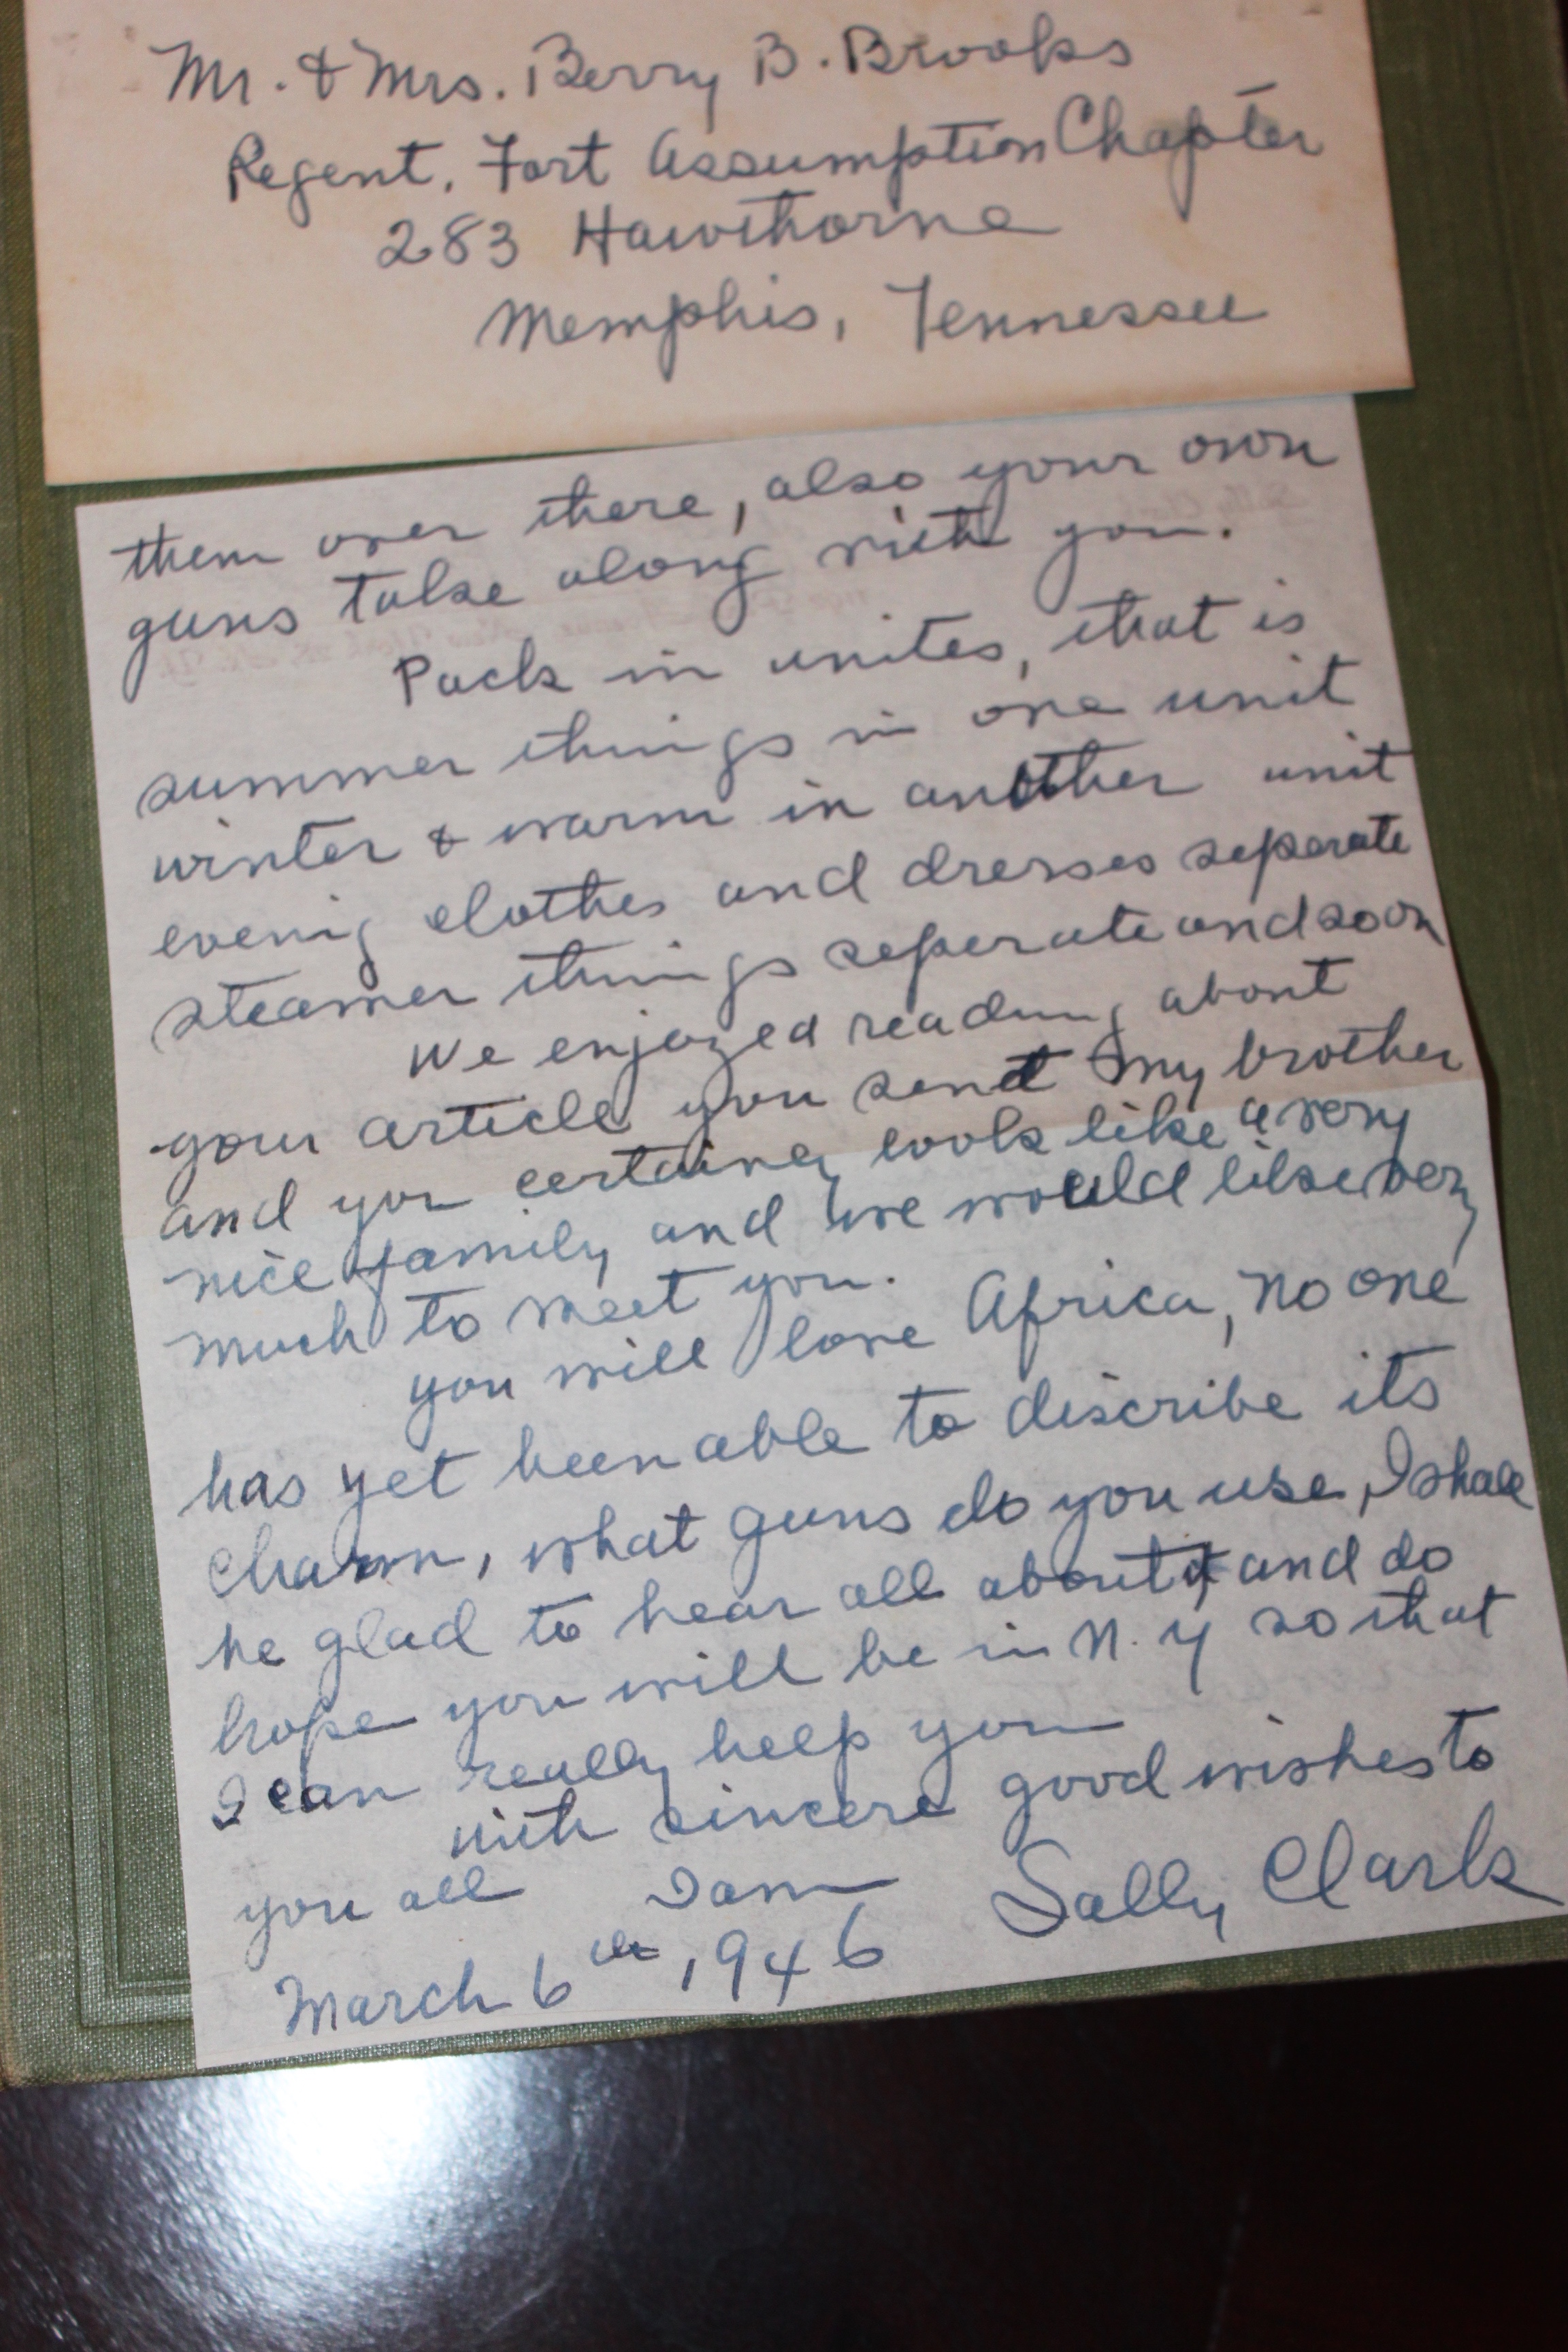 Mr. & Mrs. Berry B. Brooks
Regent, Fort Assumption Chapter
283 Hawthorne
Memphis, Tennessee
them over there, also your own
guns take along with you.
Pack in unites, that is
summer things in one unit
winter & warm in another unit
evenig clothes and dresses seperate
steamer things seperate and so on
We enjoyed reading about
your article you send my brother
and you certainey look like a very
nice family and we would like very
much to meet you.
you will love Africa, no one
has yet been able to discribe its
charm, what guns do you use, I shall
be glad to hear all about and do
hope you will be in N.Y so that
I can really help you
with sincere good wishes to
you all I am Sally Clark
March 6th, 1946